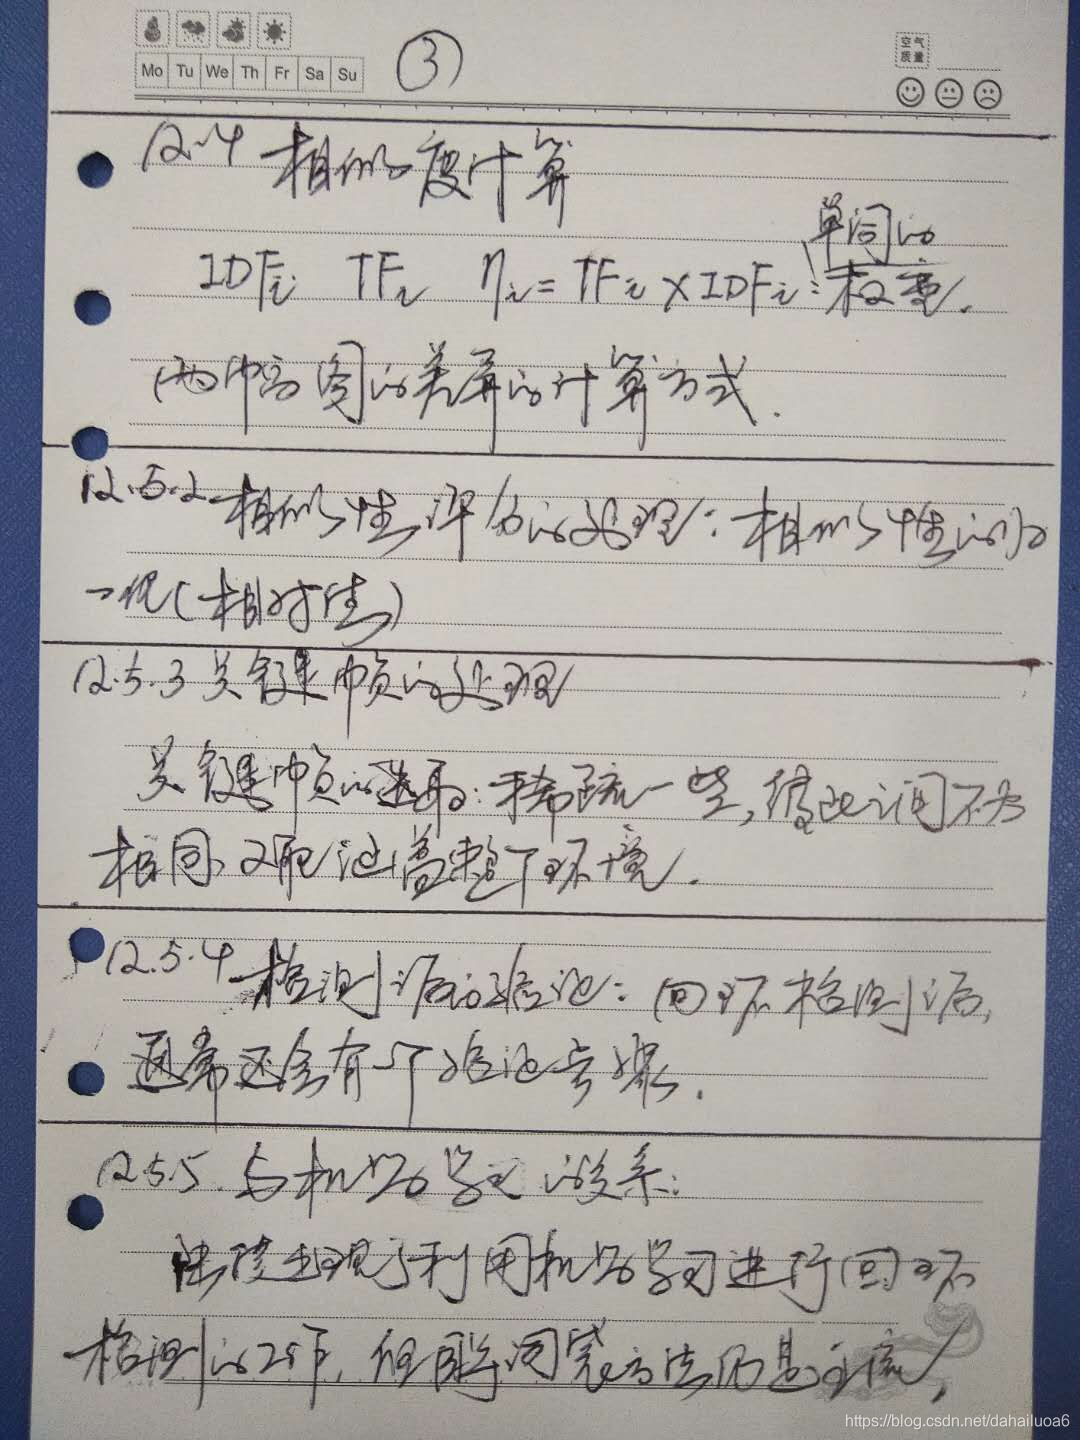 Mo Tu We Th Fr Sa Su
③
空气
质量
12.4 相似度计算
单词的
IDFi TFi ηi = TFi × IDFi : 权重.
两帧图的差异的计算方式.
12.5.2 相似性评分的处理: 相似性的归
一化(相对性)
12.5.3 关键帧的处理
关键帧的选取: 稀疏一些, 彼此之间不为
相同, 又能涵盖整个环境.
12.5.4 检测后的验证: 回环检测后,
通常还会有一个验证步骤.
12.5.5. 与机器学习的关系:
陆续出现了利用机器学习进行回环
检测的工作, 但目前词袋方法仍是主流,
https://blog.csdn.net/dahailuoa6